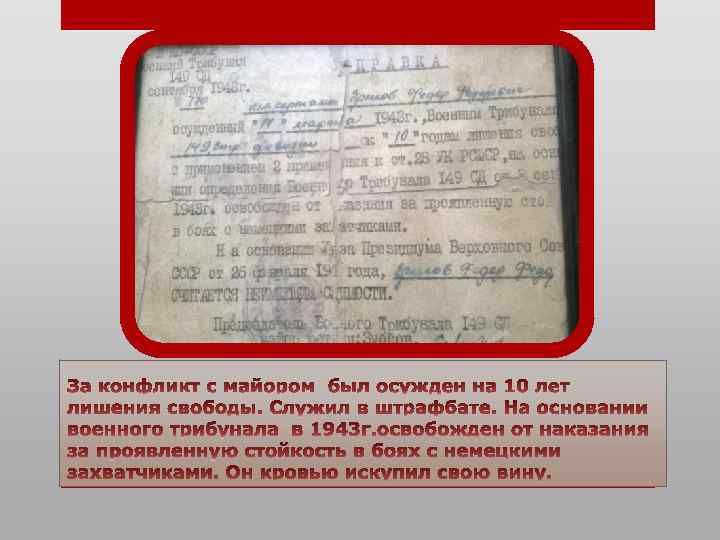 Военный Трибунал
149 СД
сентября 1943г.
№ 770
СПРАВКА
осужденный "11" марта 1943г., Военным Трибунало
149 стр дивизии ск "10" годам лишения своб
с применением 2 приме ния к ст.28 УК РСФСР, на осно
нии определения Воен го Трибунала 149 СД от сен
1943г. освобожден от казания за проявленную сто
в боях с немецкими за тчиками.
На основании Указа Президиума Верховного Сов
СССР от 26 февраля 19 года,
СЧИТАЕТСЯ НЕИМЕЮЩИМ СУДИМОСТИ.
Председатель Военного Трибунала 149 СД
За конфликт с майором был осужден на 10 лет
лишения свободы. Служил в штрафбате. На основании
военного трибунала в 1943 г.освобожден от наказания
за проявленную стойкость в боях с немецкими
захватчиками. Он кровью искупил свою вину.